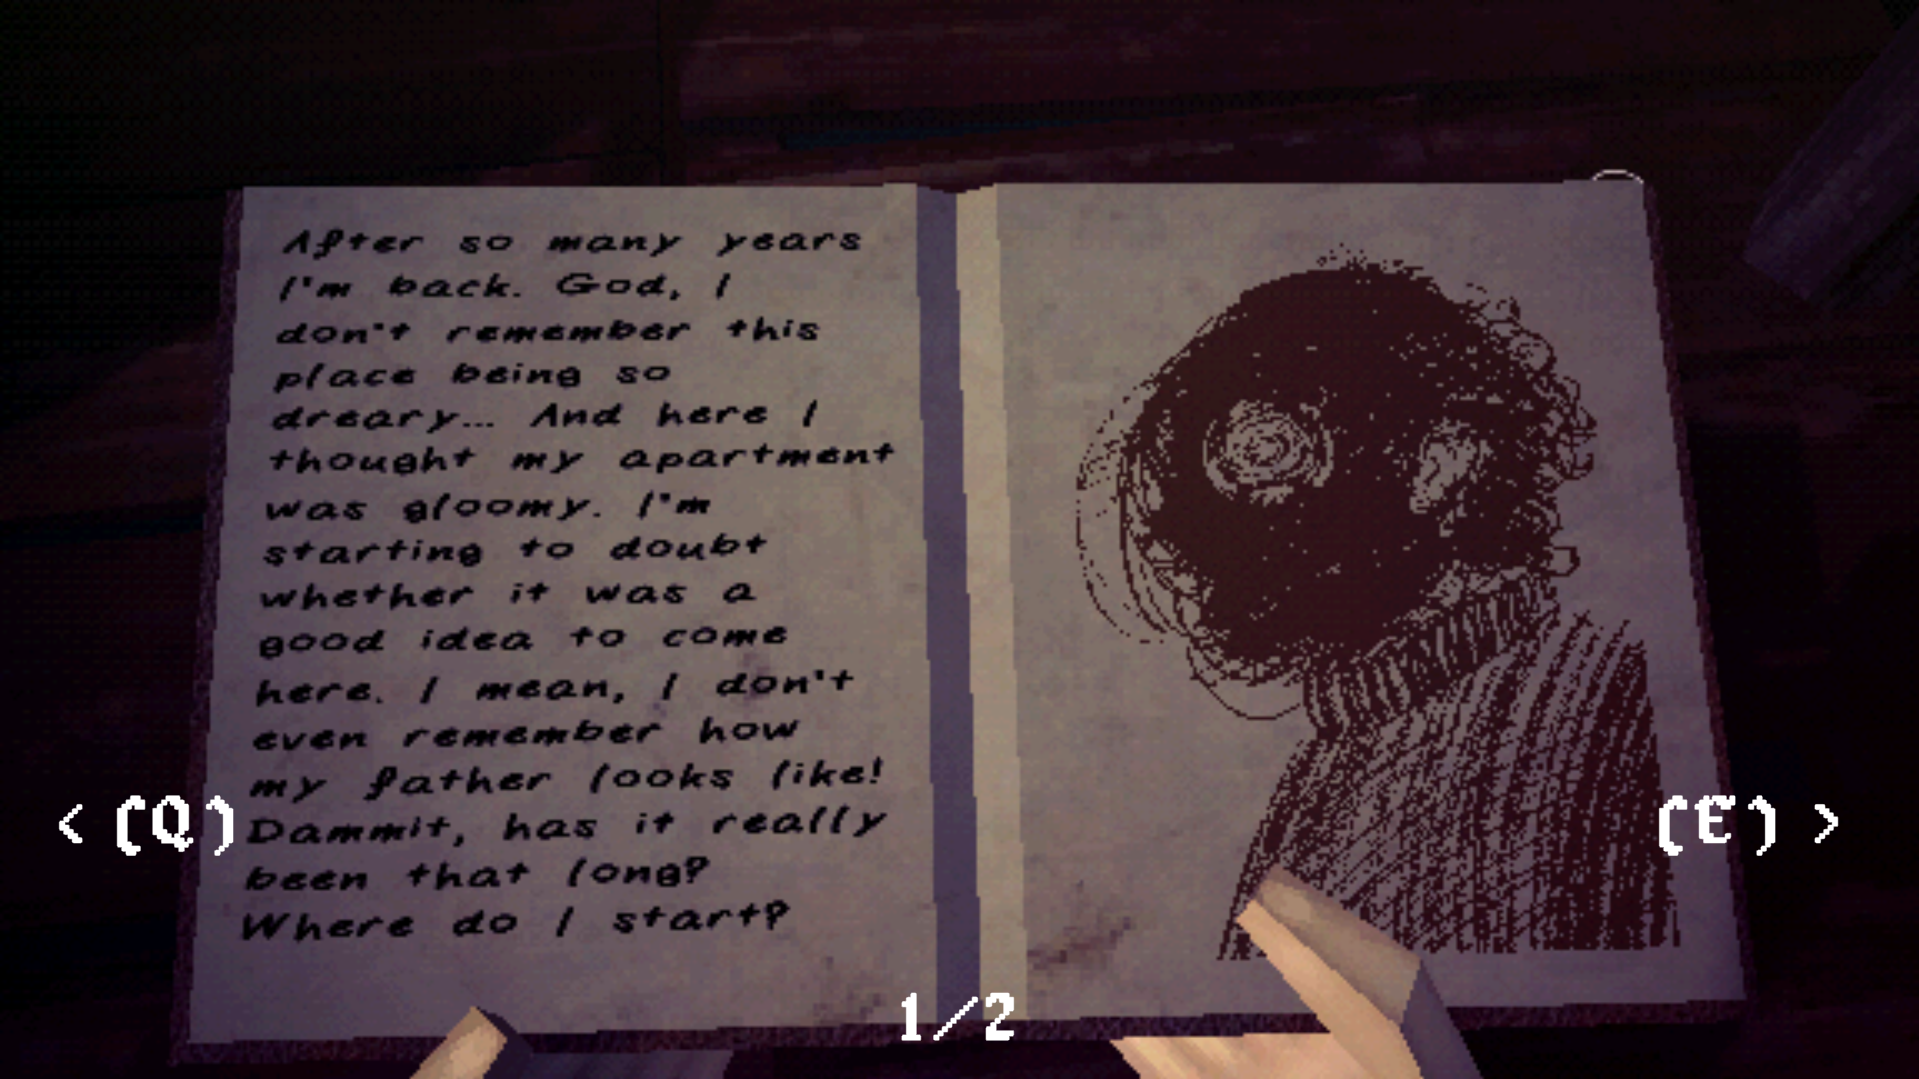 After so many years
I'm back. God, I
don't remember this
place being so
dreary... And here I
thought my apartment
was gloomy. I'm
starting to doubt
whether it was a
good idea to come
here. I mean, I don't
even remember how
my father looks like!
Dammit, has it really
been that long?
Where do I start?
< (Q)
(E) >
1/2